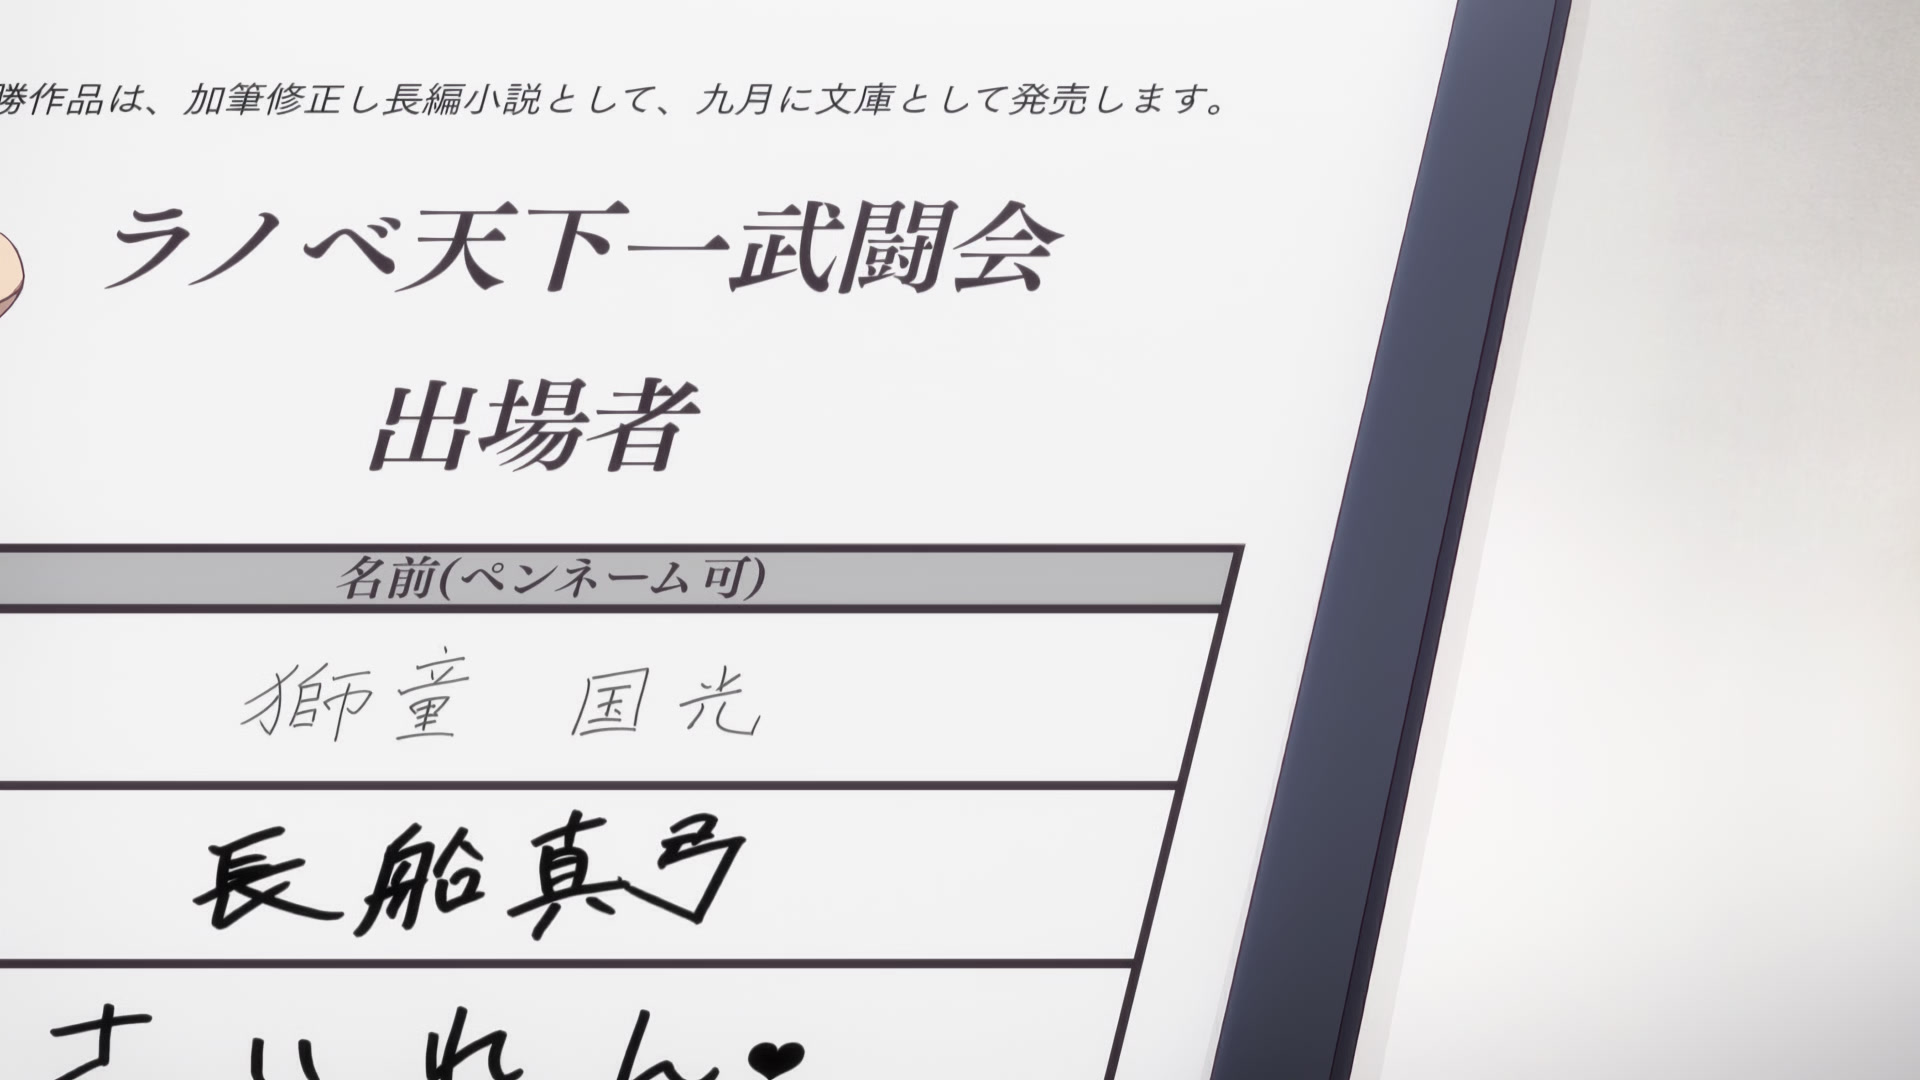 勝作品は、加筆修正し長編小説として、九月に文庫として発売します。
ラノベ天下一武闘会
出場者
名前(ペンネーム可)
獅童 国光
長船真弓
さいれん♥